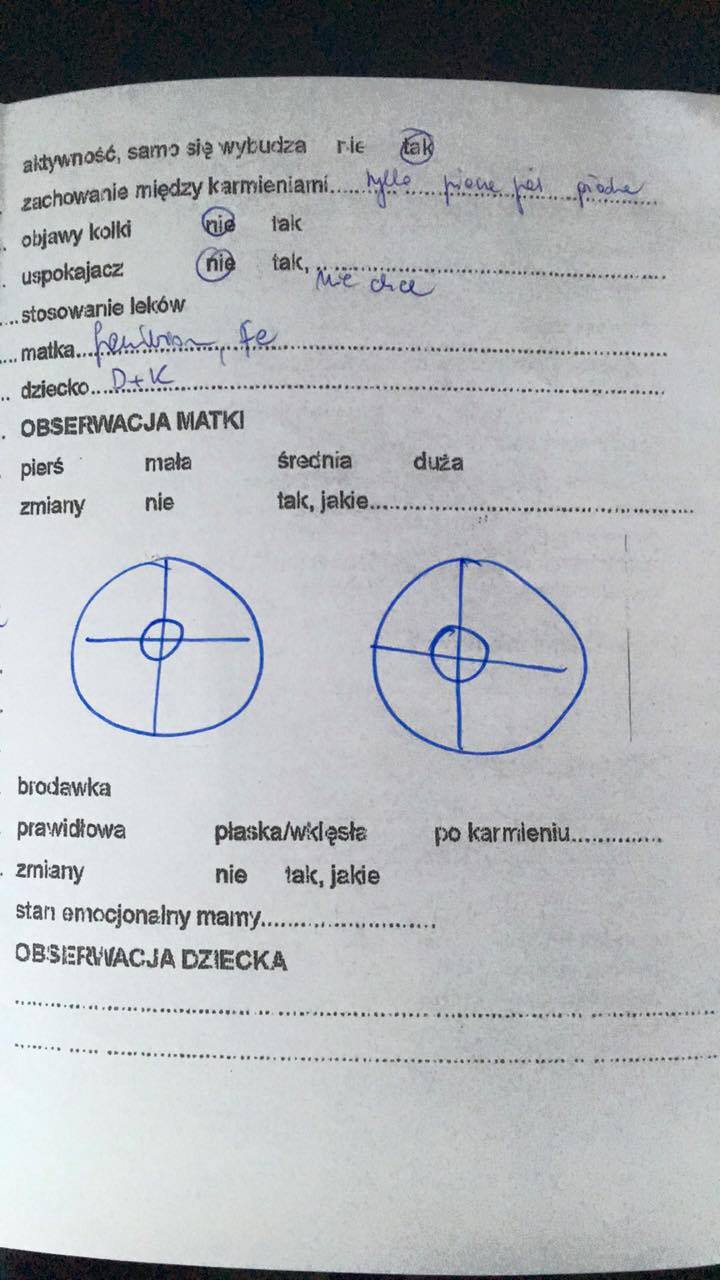 aktywność, samo się wybudza nie tak
zachowanie między karmieniami.....tylko
objawy kolki nie tak
uspokajacz nie tak, ..........
nie chce
stosowanie leków
matka......, Fe
dziecko....D+K
OBSERWACJA MATKI
pierś mała średnia duża
zmiany nie tak, jakie..........
brodawka
prawidłowa płaska/wklęsła po karmieniu..............
zmiany nie tak, jakie
stan emocjonalny mamy..........
OBSERWACJA DZIECKA